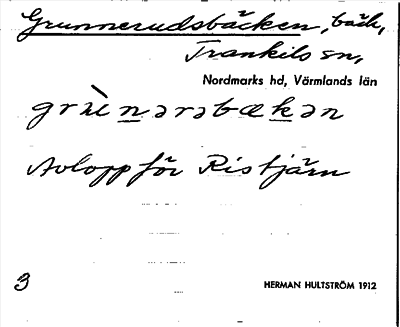 Grunnerudsbäcken, bäck,
Trankils sn,
Nordmarks hd, Värmlands län
grùnərəbækən
Avlopp för Ristjärn
3
HERMAN HULTSTRÖM 1912